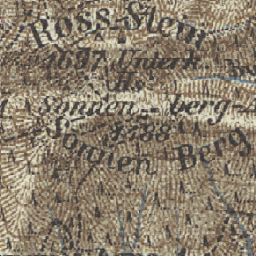 Ross-Stein
1697 Unterk.
H.
Sonnen-berg-A
1788
Sonnen Berg